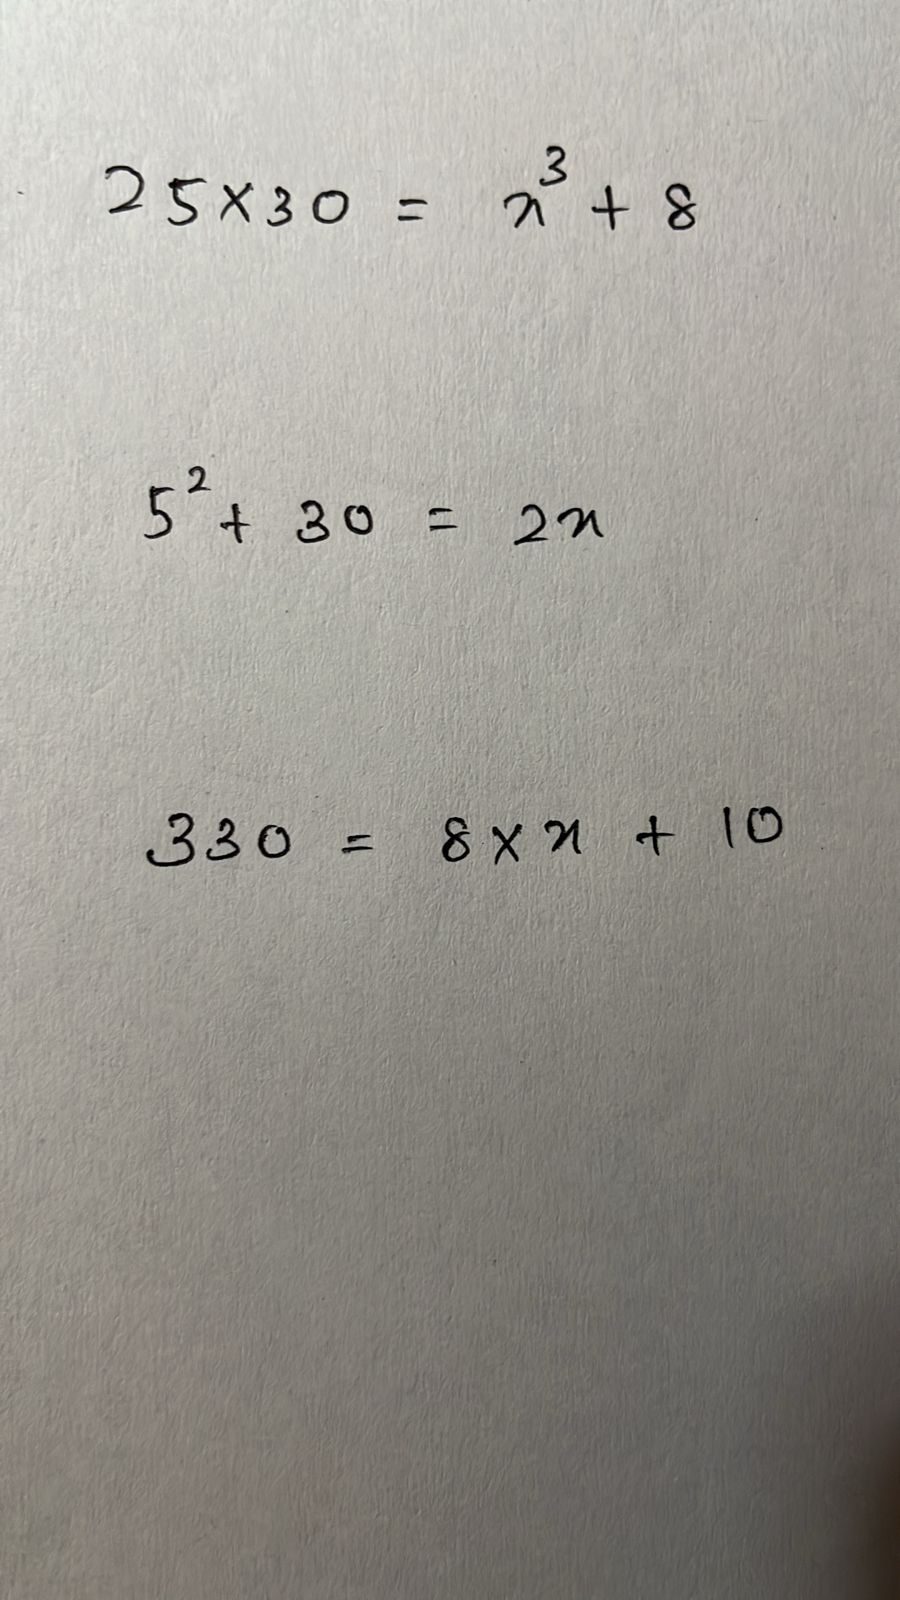 25×30 = x³ + 8
5² + 30 = 2x
330 = 8×x + 10